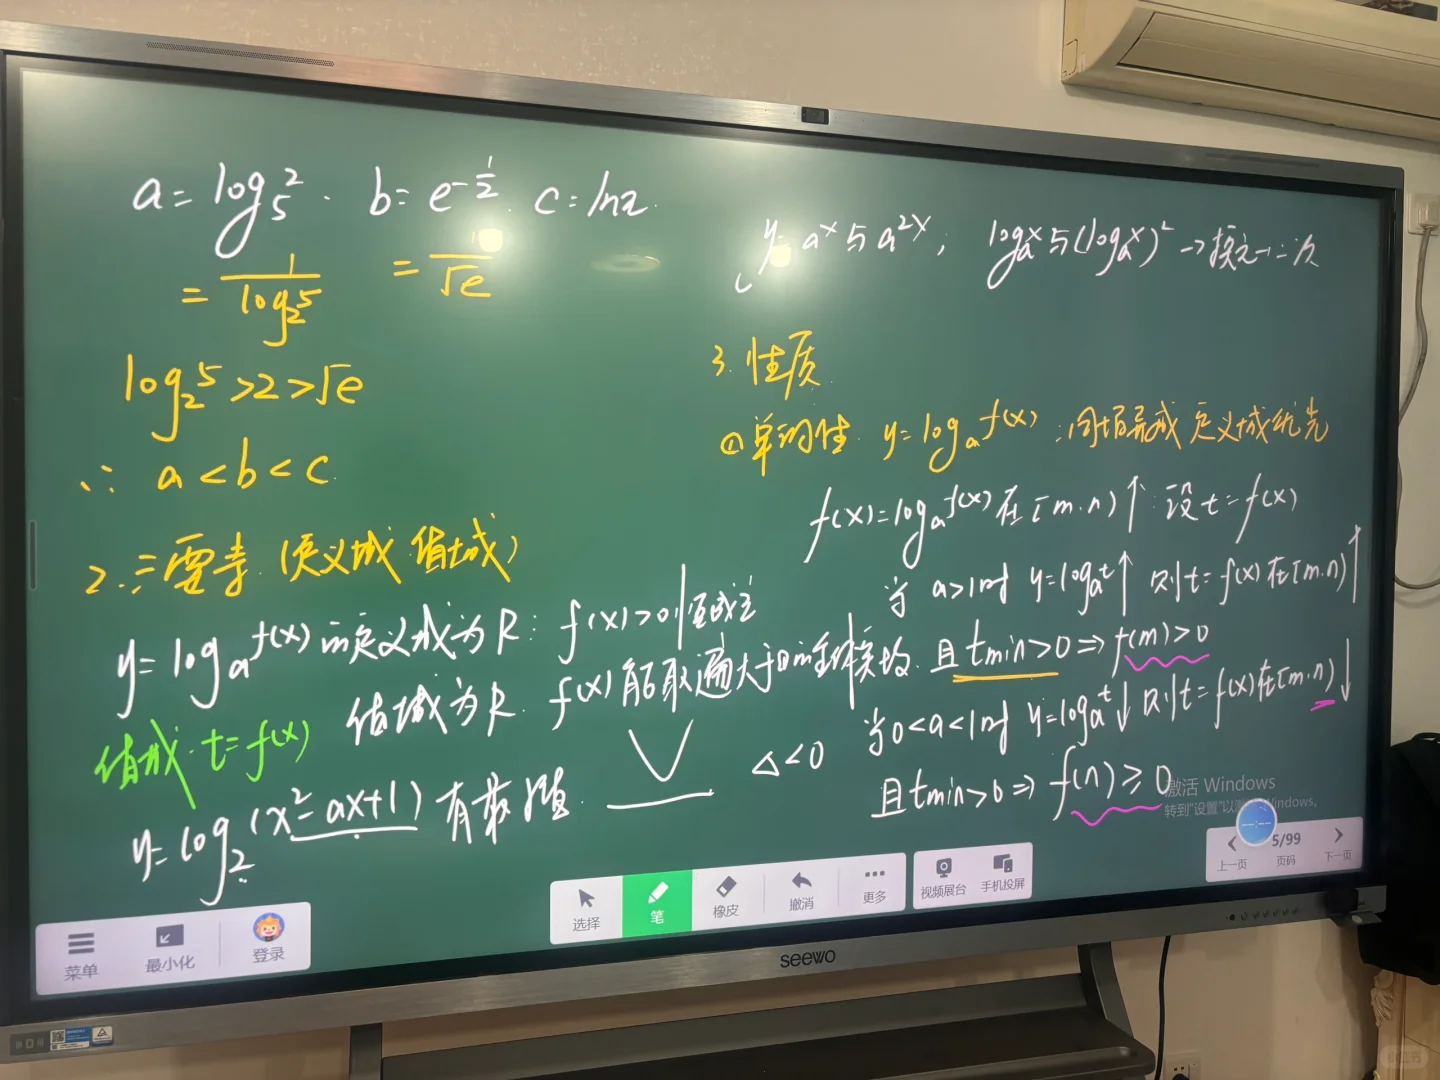 a = log₅2 . b = e^(-1/2) . c = ln2.
= 1/log₂5 = 1/√e
log₂5 > 2 > √e
∴ a < b < c
2. 三要素 (定义域 值域)
y = logₐf(x) 的定义域为R: f(x)>0 恒成立
值域为R. f(x)能取遍大于0的全体实数.
值域. t = f(x)
y = log₂(x² - ax + 1) 有最值.
△ < 0
y = aˣ 与 a²ˣ, logₐx 与 (logₐx)² → 换元 → 二次
3. 性质
① 单调性. y = logₐf(x) : 同增异减 定义域优先
f(x) = logₐf(x) 在 [m.n) ↑. 设 t = f(x)
当 a>1时 y = logₐt ↑ 则 t = f(x) 在 [m.n) ↑
且 tmin>0 ⇒ f(m)>0
当 0<a<1时 y = logₐt ↓ 则 t = f(x) 在 [m.n) ↓
且 tmin>0 ⇒ f(n) ≥ 0
激活 Windows
转到"设置"以激活 Windows。
菜单
最小化
登录
选择
笔
橡皮
撤消
更多
视频展台
手机投屏
上一页
5/99
页码
下一页
seewo